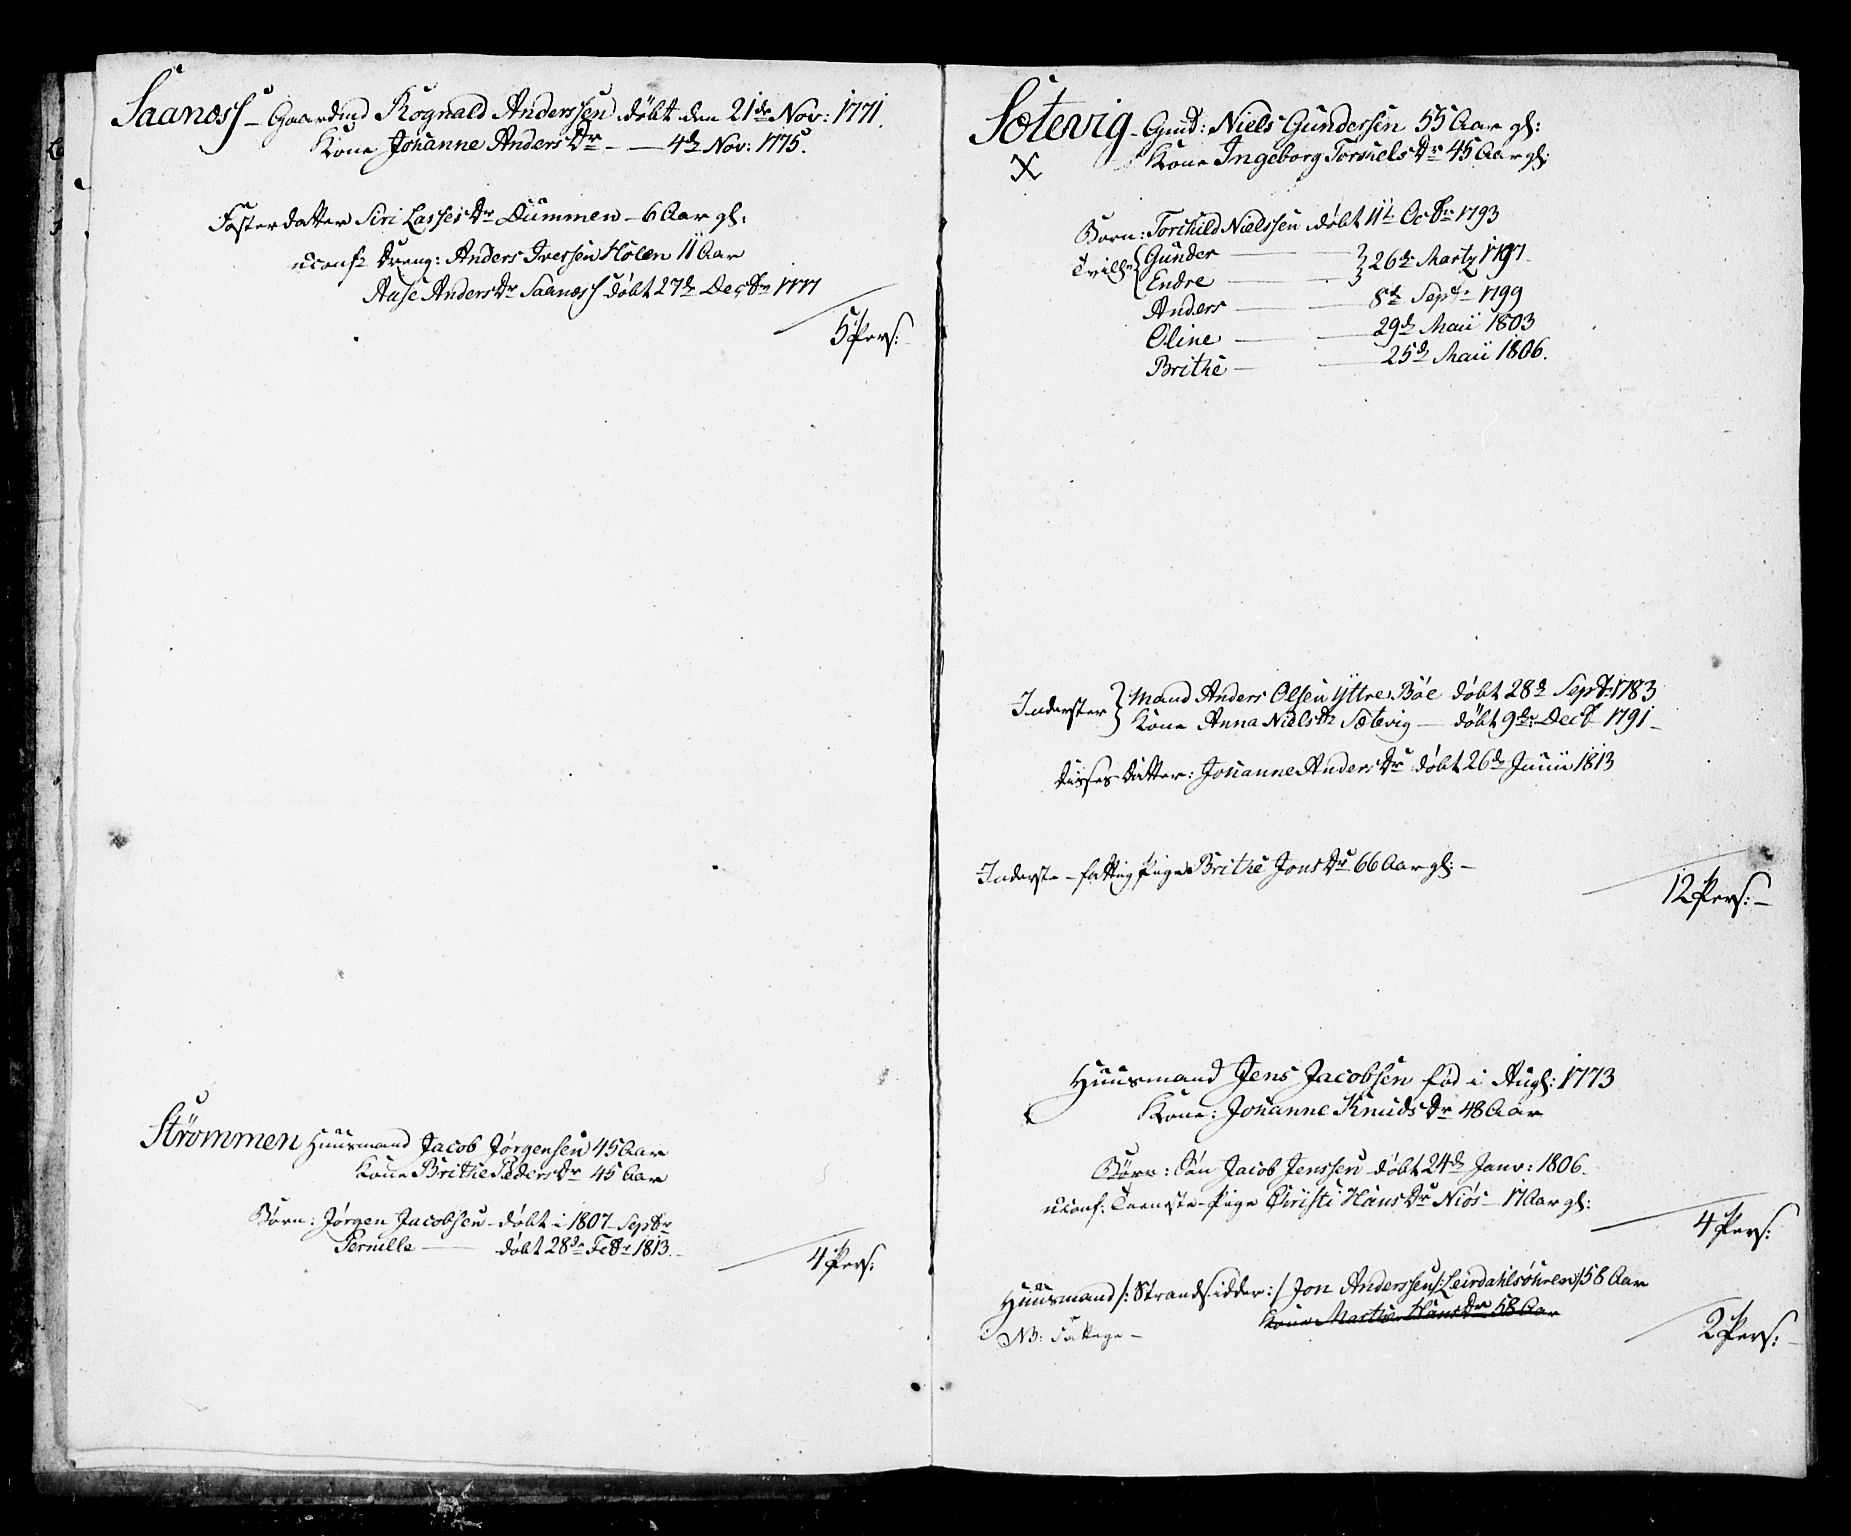 Saanæss – Gaardmd Rognald Anderssen døbt den 21de Nov: 1771.
Kone Johanne Andersdr – 4de Nov: 1775.
Fosterdatter Siri Lassesdr Dummen – 6 Aar gl:
uconf: Dreng: Anders Iversen Holen 11 Aar
Aase Andersdr Saanæss døbt 27de Decbr 1777
5 Pers:
Strømmen Huusmand Jacob Jørgensen 45 Aar
Kone Brithe Pedersdr 45 Aar
Børn: Jørgen Jacobsen – døbt i 1807 – Septbr
Pernille – døbt 28de Febr 1813. –
4 Pers:
Sætevig – Gmd: Niels Gundersen 55 Aar gl:
X Kone Ingeborg Torkielsdr 45 Aar gl:
Børn: Torchild Nielssen døbt 11te Octbr 1793
Tvill: { Gunder – } 26de Martz 1797.
Endre –
Anders – 8de Septr 1799
Oline – 29de Maii 1803
Brithe – 25de Maii 1806.
Inderster } Mand Anders Olsen Yttre Bøe døbt 28de Septbr 1783
Kone Anna Nielsdr Sætevig – døbt 9de Decbr 1791 –
disses Datter: Johanne Andersdr døbt 26de Junii 1813
Inderste – fattig Pige Brithe Jonsdr 66 Aar gl: –
12 Pers: –
Huusmand Jens Jacobsen fød i Augs: 1773
Kone: Johanne Knudsdr 48 Aar
Børn: Søn Jacob Jenssen døbt 24de Janv: 1806.
uconf: Tieneste-Pige Christi Hansdr Niøs – 17 Aar gl:
4 Pers:
Huusmand /: Strandsidder :/ Jon Anderssen /: Leirdahlsøhren :/ 58 Aar
Kone Marthe Hansdr 58 Aar
NB:
2 Pers: –